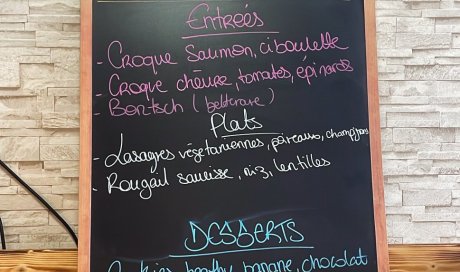 Entrées
- Croque saumon, ciboulette
- Croque chèvre, tomates, épinards
- Bortsch (betterave)
Plats
- Lasagnes végétariennes, poireaux, champignons
- Rougail saucisse, riz, lentilles
DESSERTS
Cookies healthy banane, chocolat